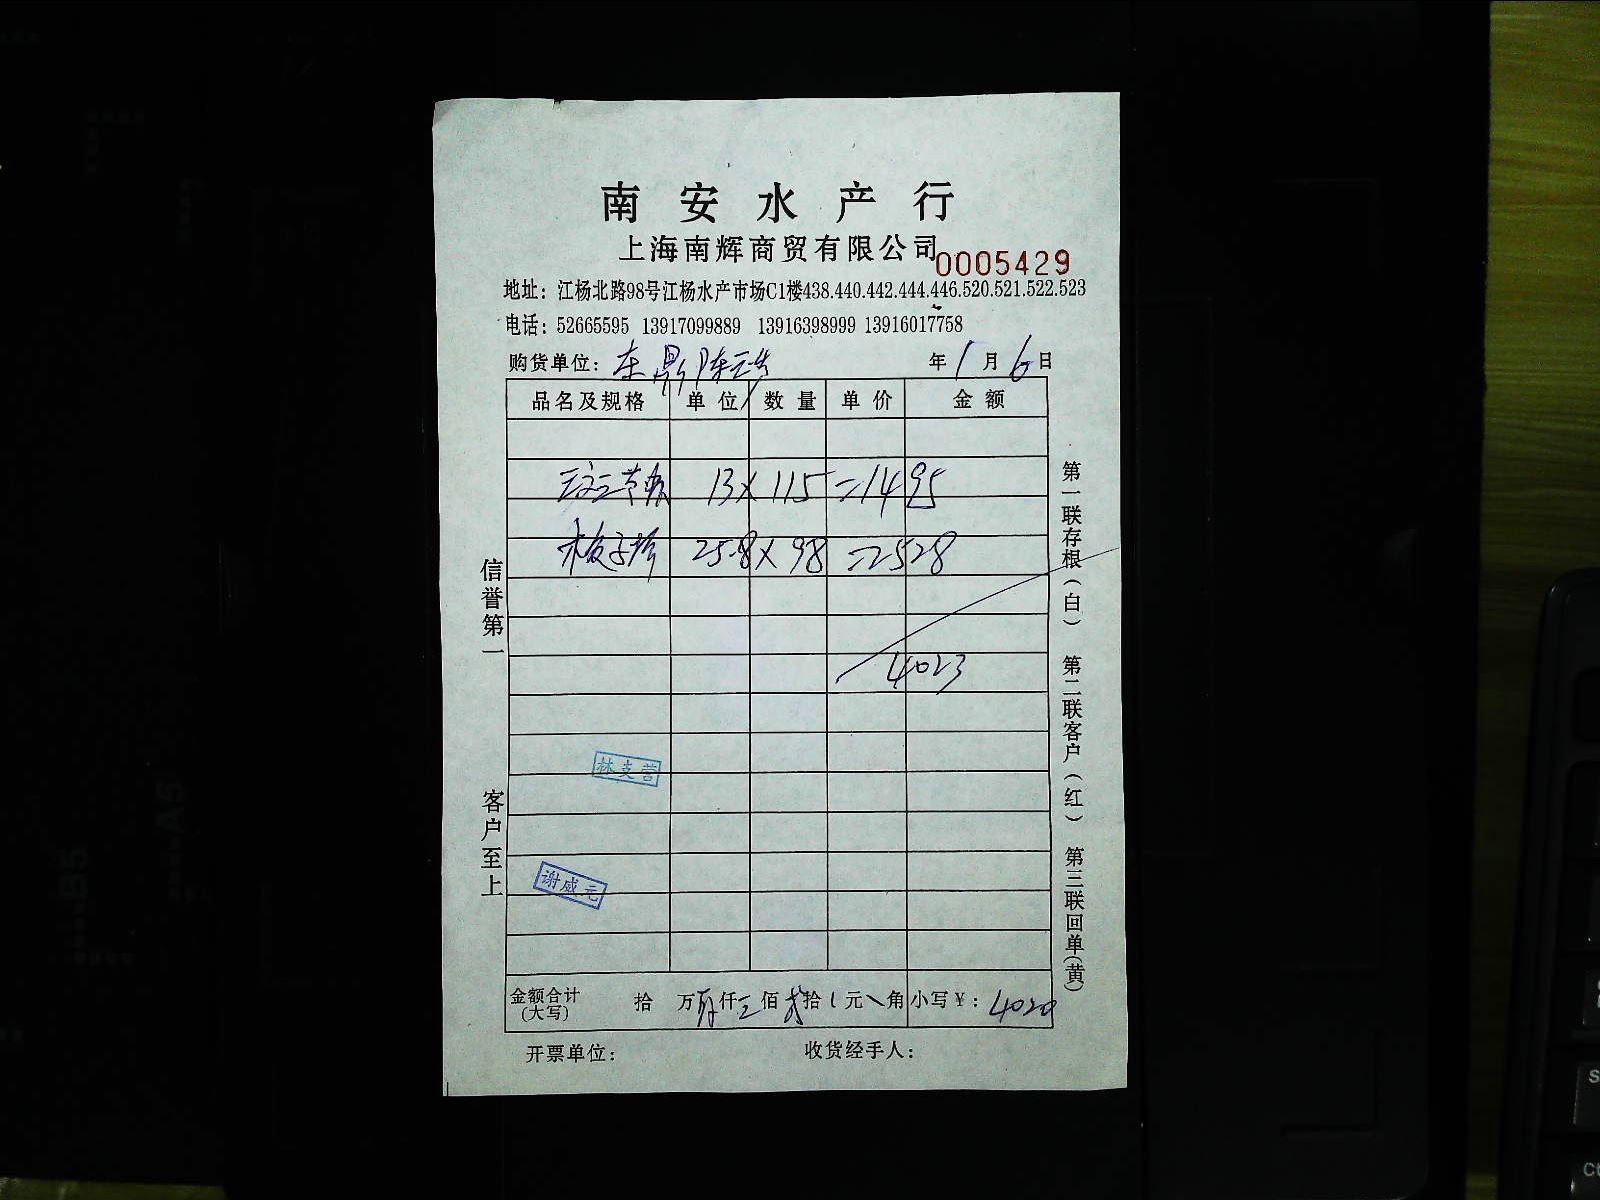 南安水产行
上海南辉商贸有限公司
0005429
地址：江杨北路98号江杨水产市场C1楼438.440.442.444.446.520.521.522.523
电话：52665595 13917099889 13916398999 13916017758
购货单位： 年 1 月 6 日
品名及规格 单位 数量 单价 金额
13 × 115 = 1495
25.8 × 98 = 2528
4023
林支营
谢威元
金额合计 拾 万 仟 佰 拾 元 角 小写￥： 4020
(大写)
开票单位： 收货经手人：
信誉第一
客户至上
第一联存根（白） 第二联客户（红） 第三联回单（黄）